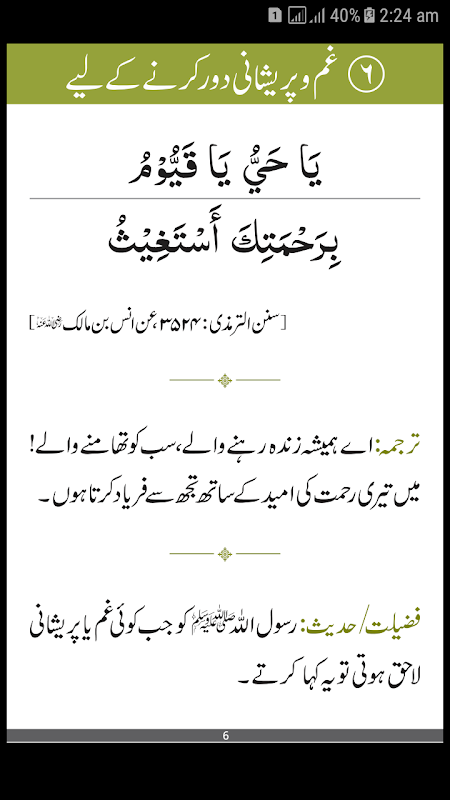 1 40% 2:24 am
۶ غم و پریشانی دور کرنے کے لیے
يَا حَيُّ يَا قَيُّوْمُ
بِرَحْمَتِكَ أَسْتَغِيْثُ
[سنن الترمذی: ۳۵۲۴، عن انس بن مالک رضی اللہ عنہ]
ترجمہ: اے ہمیشہ زندہ رہنے والے، سب کو تھامنے والے!
میں تیری رحمت کی امید کے ساتھ تجھ سے فریاد کرتا ہوں۔
فضیلت/حدیث: رسول اللہ ﷺ کو جب کوئی غم یا پریشانی
لاحق ہوتی تو یہ کہا کرتے۔
6